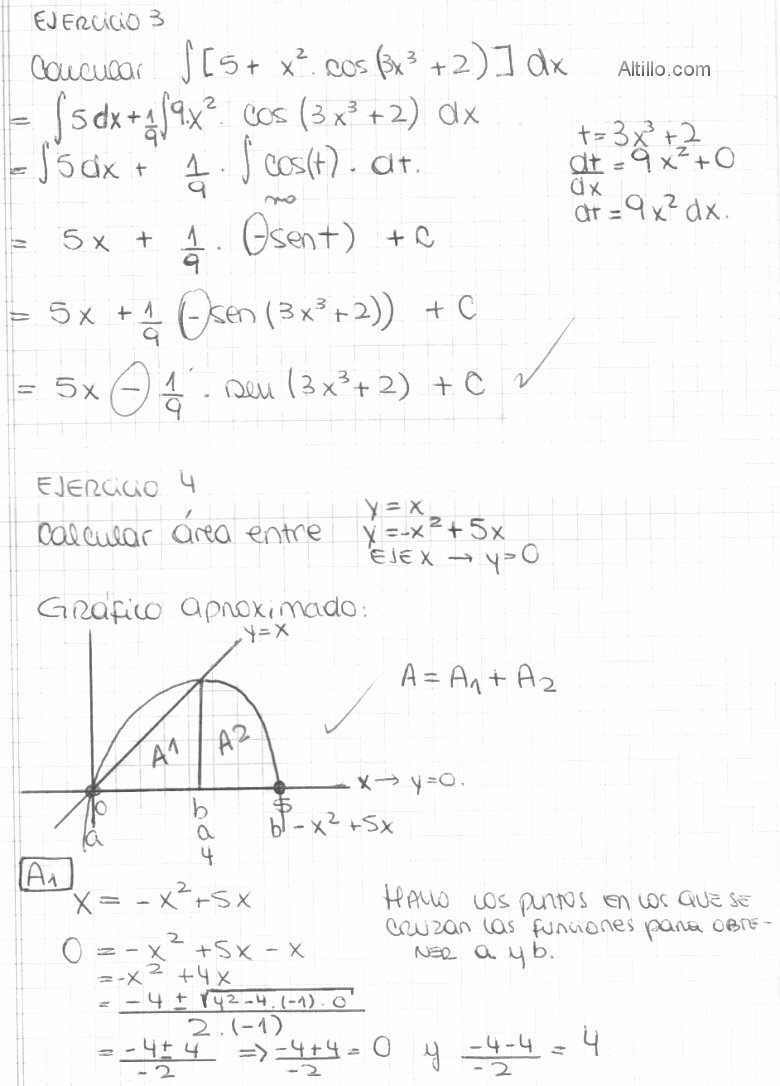 EJERCICIO 3
Calcular ∫[5 + x². cos(3x³ + 2)] dx
Altillo.com
= ∫5dx + 1/9 ∫9.x². cos (3x³ + 2) dx
= ∫5dx + 1/9 . ∫ cos(t) . dt.
t = 3x³ + 2
dt/dx = 9x² + 0
dt = 9x² dx.
= 5x + 1/9 . (-sen t) + C
= 5x + 1/9 (-sen (3x³ + 2)) + C
= 5x - 1/9 . sen (3x³ + 2) + C ✓
EJERCICIO 4
Calcular área entre
y = x
y = -x² + 5x
EJE X → y = 0
Gráfico aproximado:
y = x
A = A1 + A2
✓
A1
A2
x → y = 0.
0
a
b
a
4
5
b
- x² + 5x
A1
x = - x² + 5x
HALLO LOS PUNTOS EN LOS QUE SE
CRUZAN LAS FUNCIONES PARA OBTE-
NER a y b.
0 = - x² + 5x - x
= -x² + 4x
= (-4 ± √4² - 4.(-1).0) / 2.(-1)
= (-4 ± 4)/-2 => (-4+4)/-2 = 0 y (-4-4)/-2 = 4